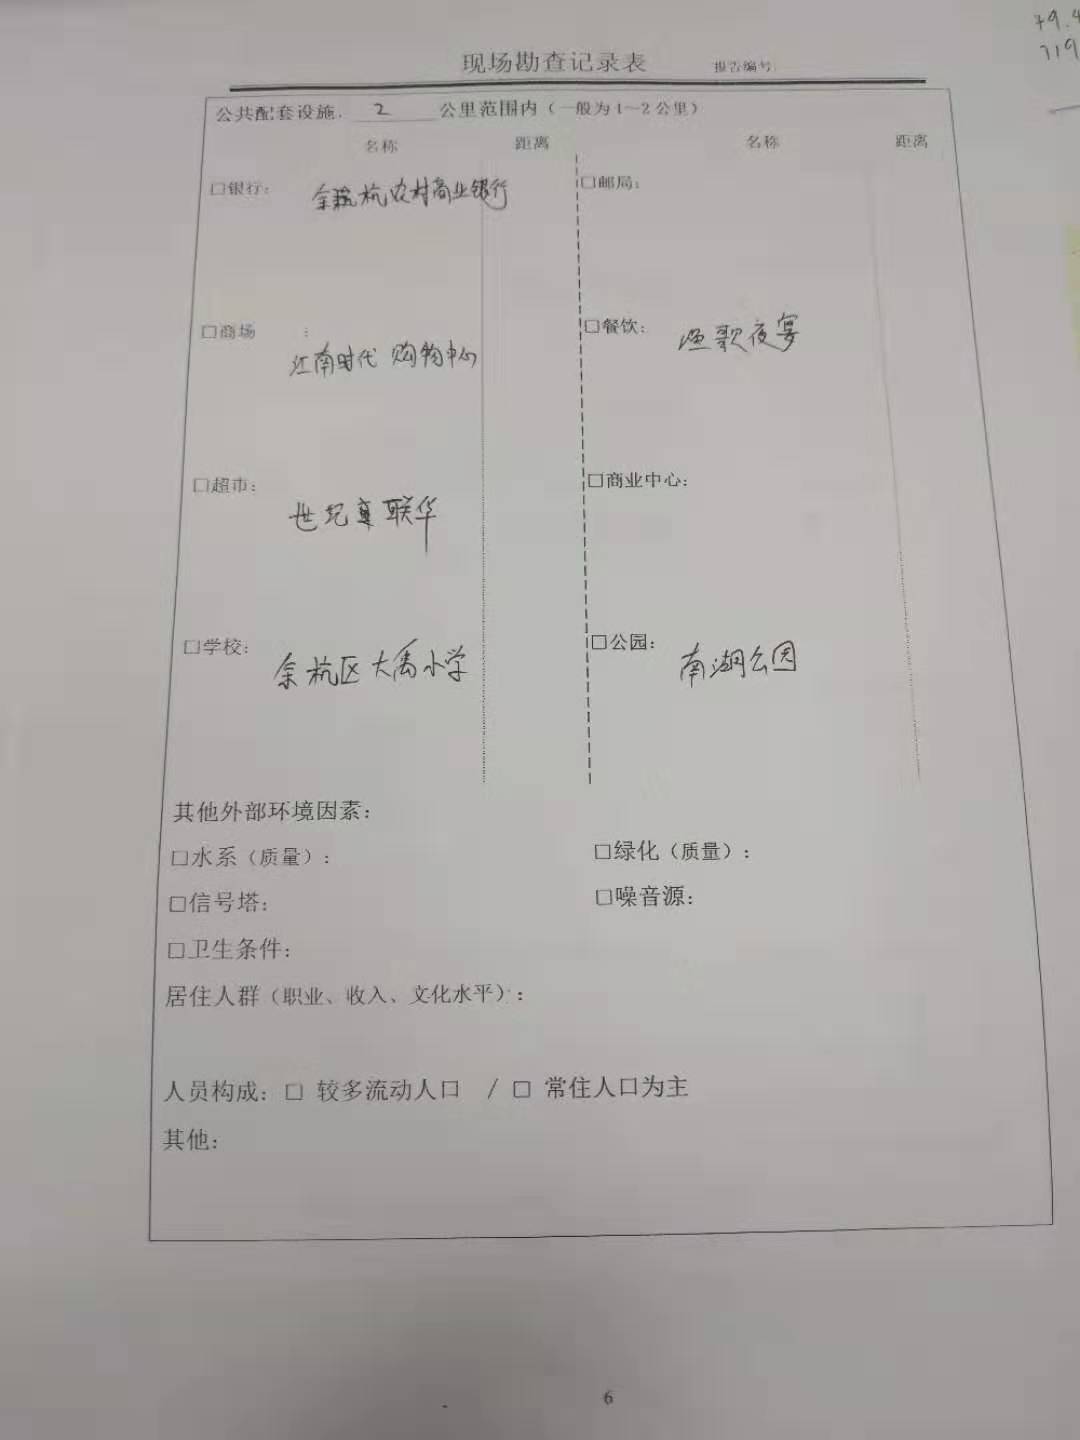 79.4
719
现场勘查记录表 报告编号:
公共配套设施. 2 公里范围内（一般为1～2公里）
名称 距离 名称 距离
□银行: 余杭农村商业银行 □邮局:
□商场 : 江南时代购物中心 □餐饮: 渔歌夜宴
□超市: 世纪联华 □商业中心:
□学校: 余杭区大禹小学 □公园: 南湖公园
其他外部环境因素:
□水系（质量）: □绿化（质量）:
□信号塔: □噪音源:
□卫生条件:
居住人群（职业、收入、文化水平）:
人员构成: □ 较多流动人口 / □ 常住人口为主
其他:
6